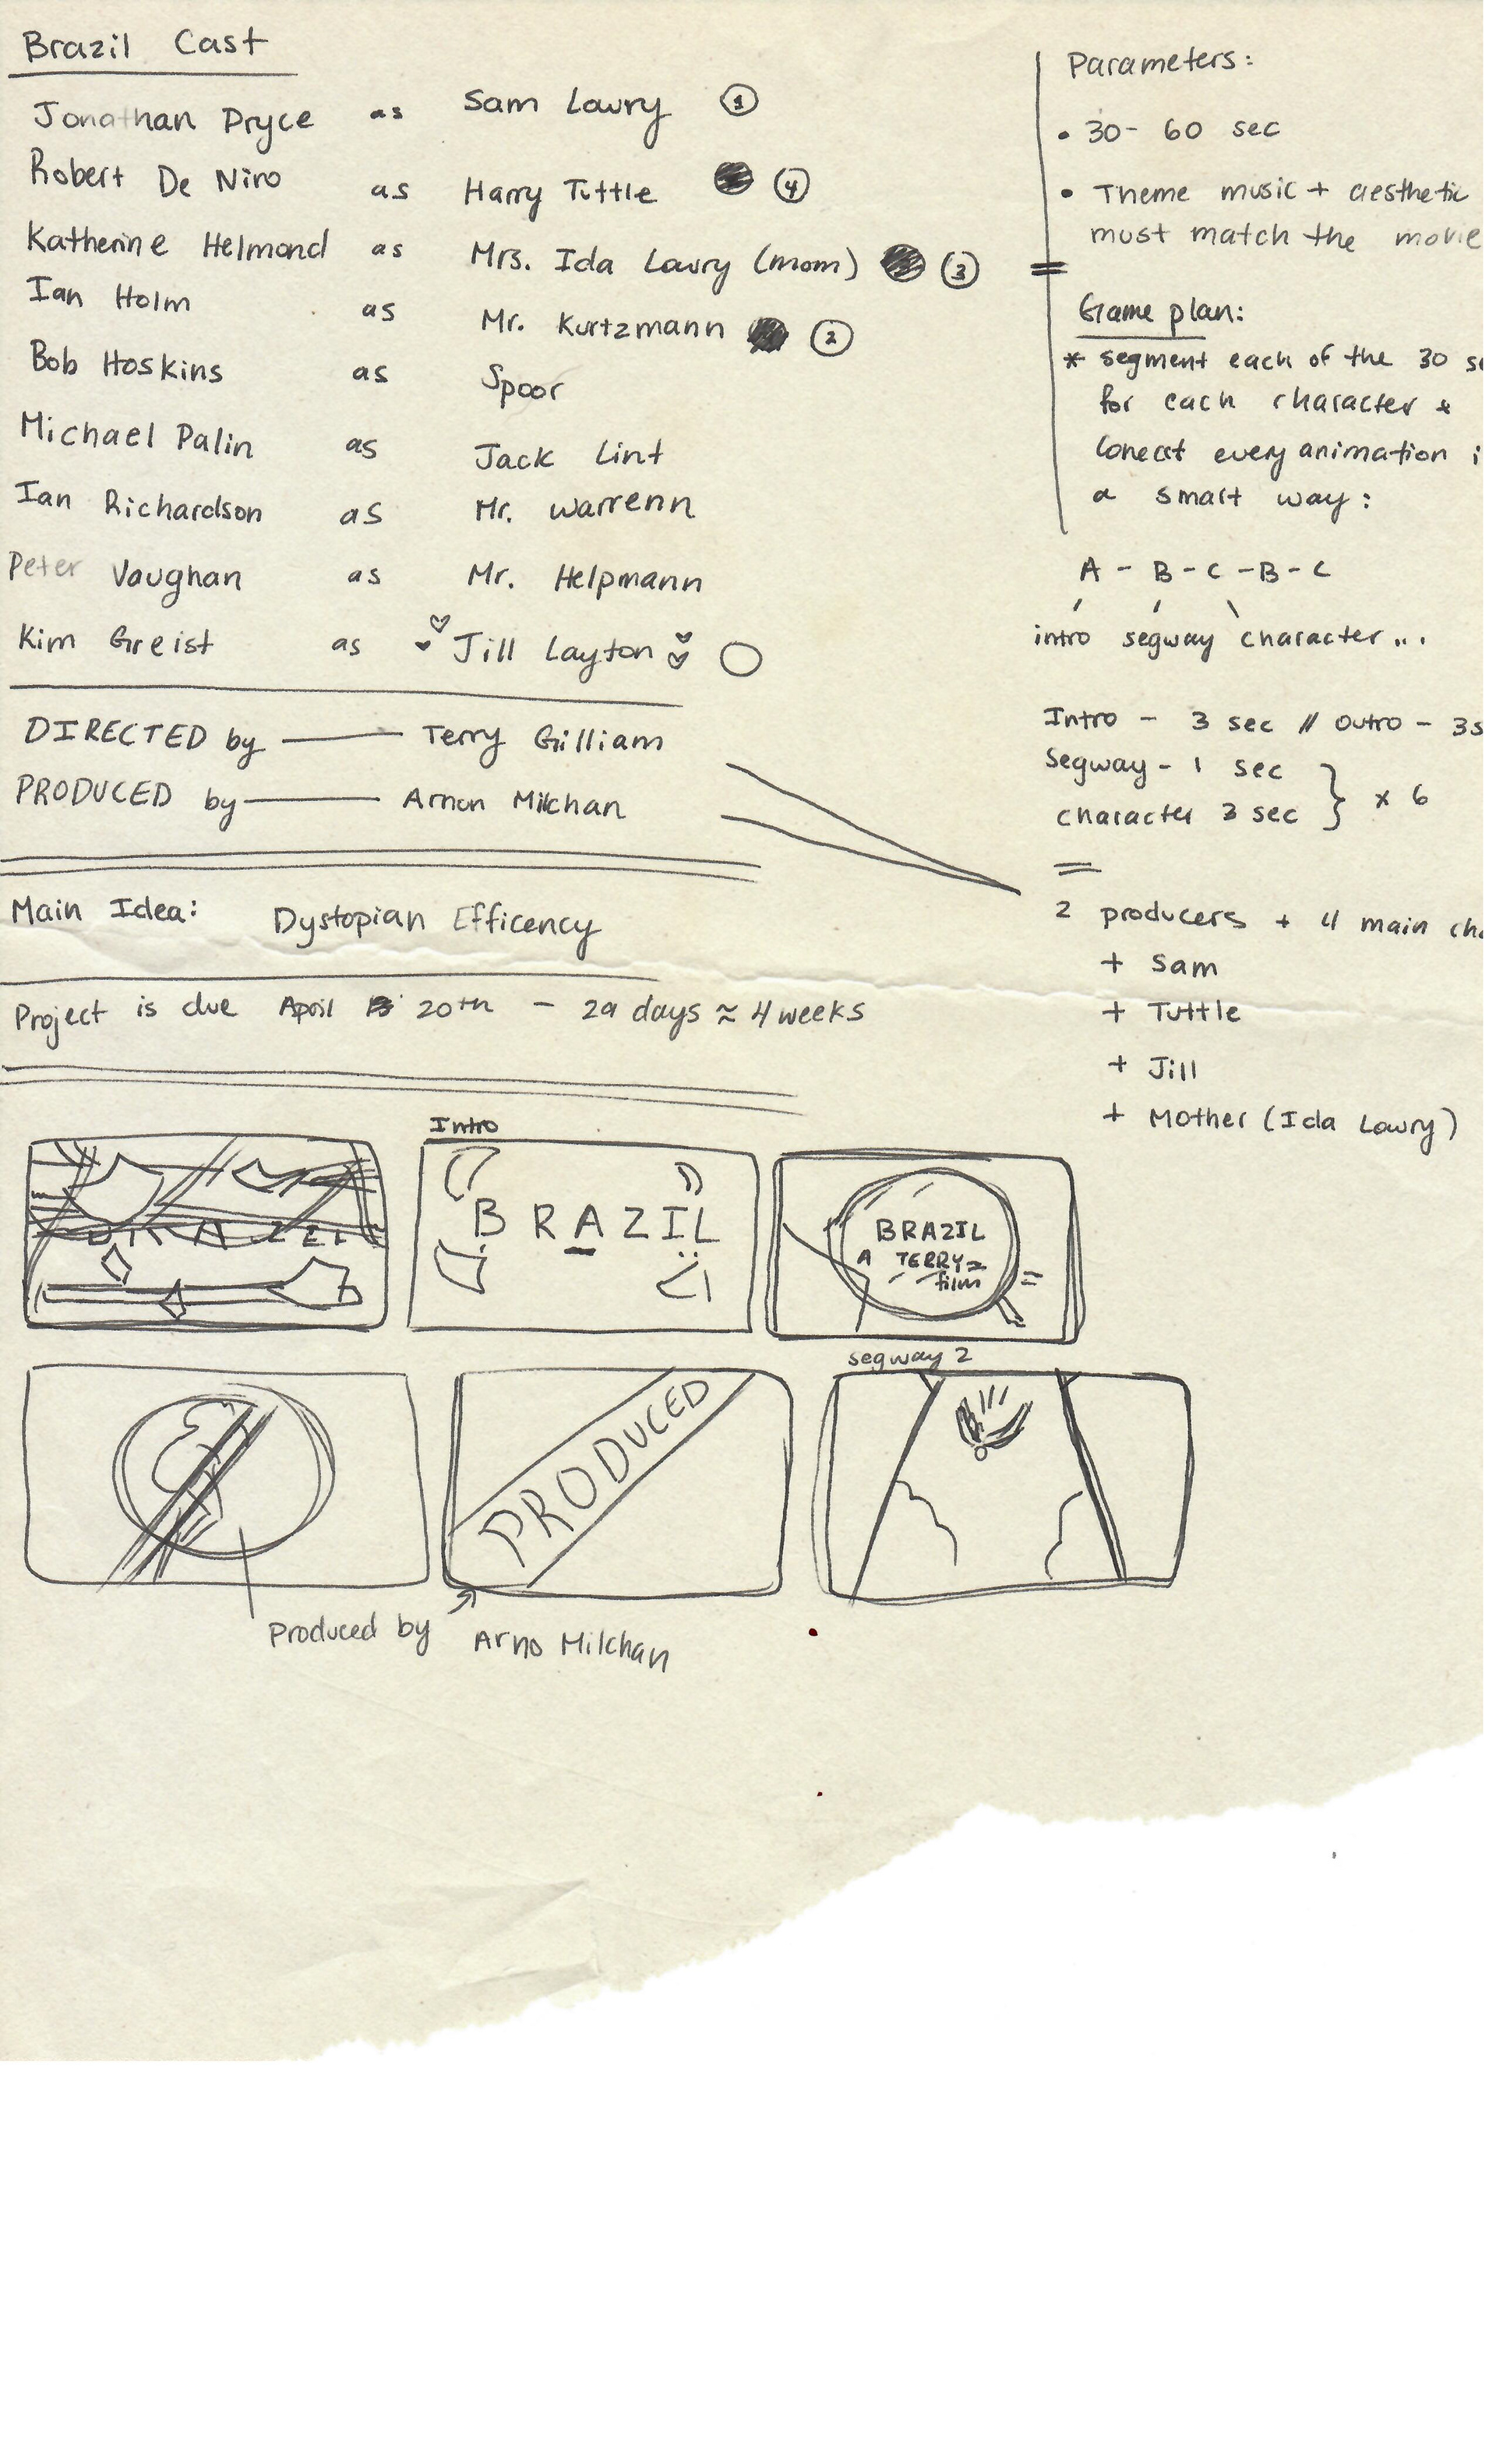 Brazil Cast
Jonathan Pryce as Sam Lowry 1
Robert De Niro as Harry Tuttle 4
Katherine Helmond as Mrs. Ida Lowry (mom) 3
Ian Holm as Mr. Kurtzmann 2
Bob Hoskins as Spoor
Michael Palin as Jack Lint
Ian Richardson as Mr. Warrenn
Peter Vaughan as Mr. Helpmann
Kim Greist as Jill Layton
DIRECTED by — Terry Gilliam
PRODUCED by — Arnon Milchan
Main Idea: Dystopian Efficency
Project is due April 20th - 29 days ≈ 4 weeks
Parameters:
• 30- 60 sec
• Theme music + aesthetic
must match the movie
Game plan:
* segment each of the 30 s
for each character &
conect every animation i
a smart way:
A - B - C - B - C
intro segway character...
Intro - 3 sec // Outro - 3s
Segway - 1 sec
character 3 sec } x 6
=
2 producers + 4 main cha
+ Sam
+ Tuttle
+ Jill
+ Mother (Ida Lowry)
Intro
BRAZIL
BRAZIL
A TERRY
film
PRODUCED
segway 2
Produced by Arno Milchan